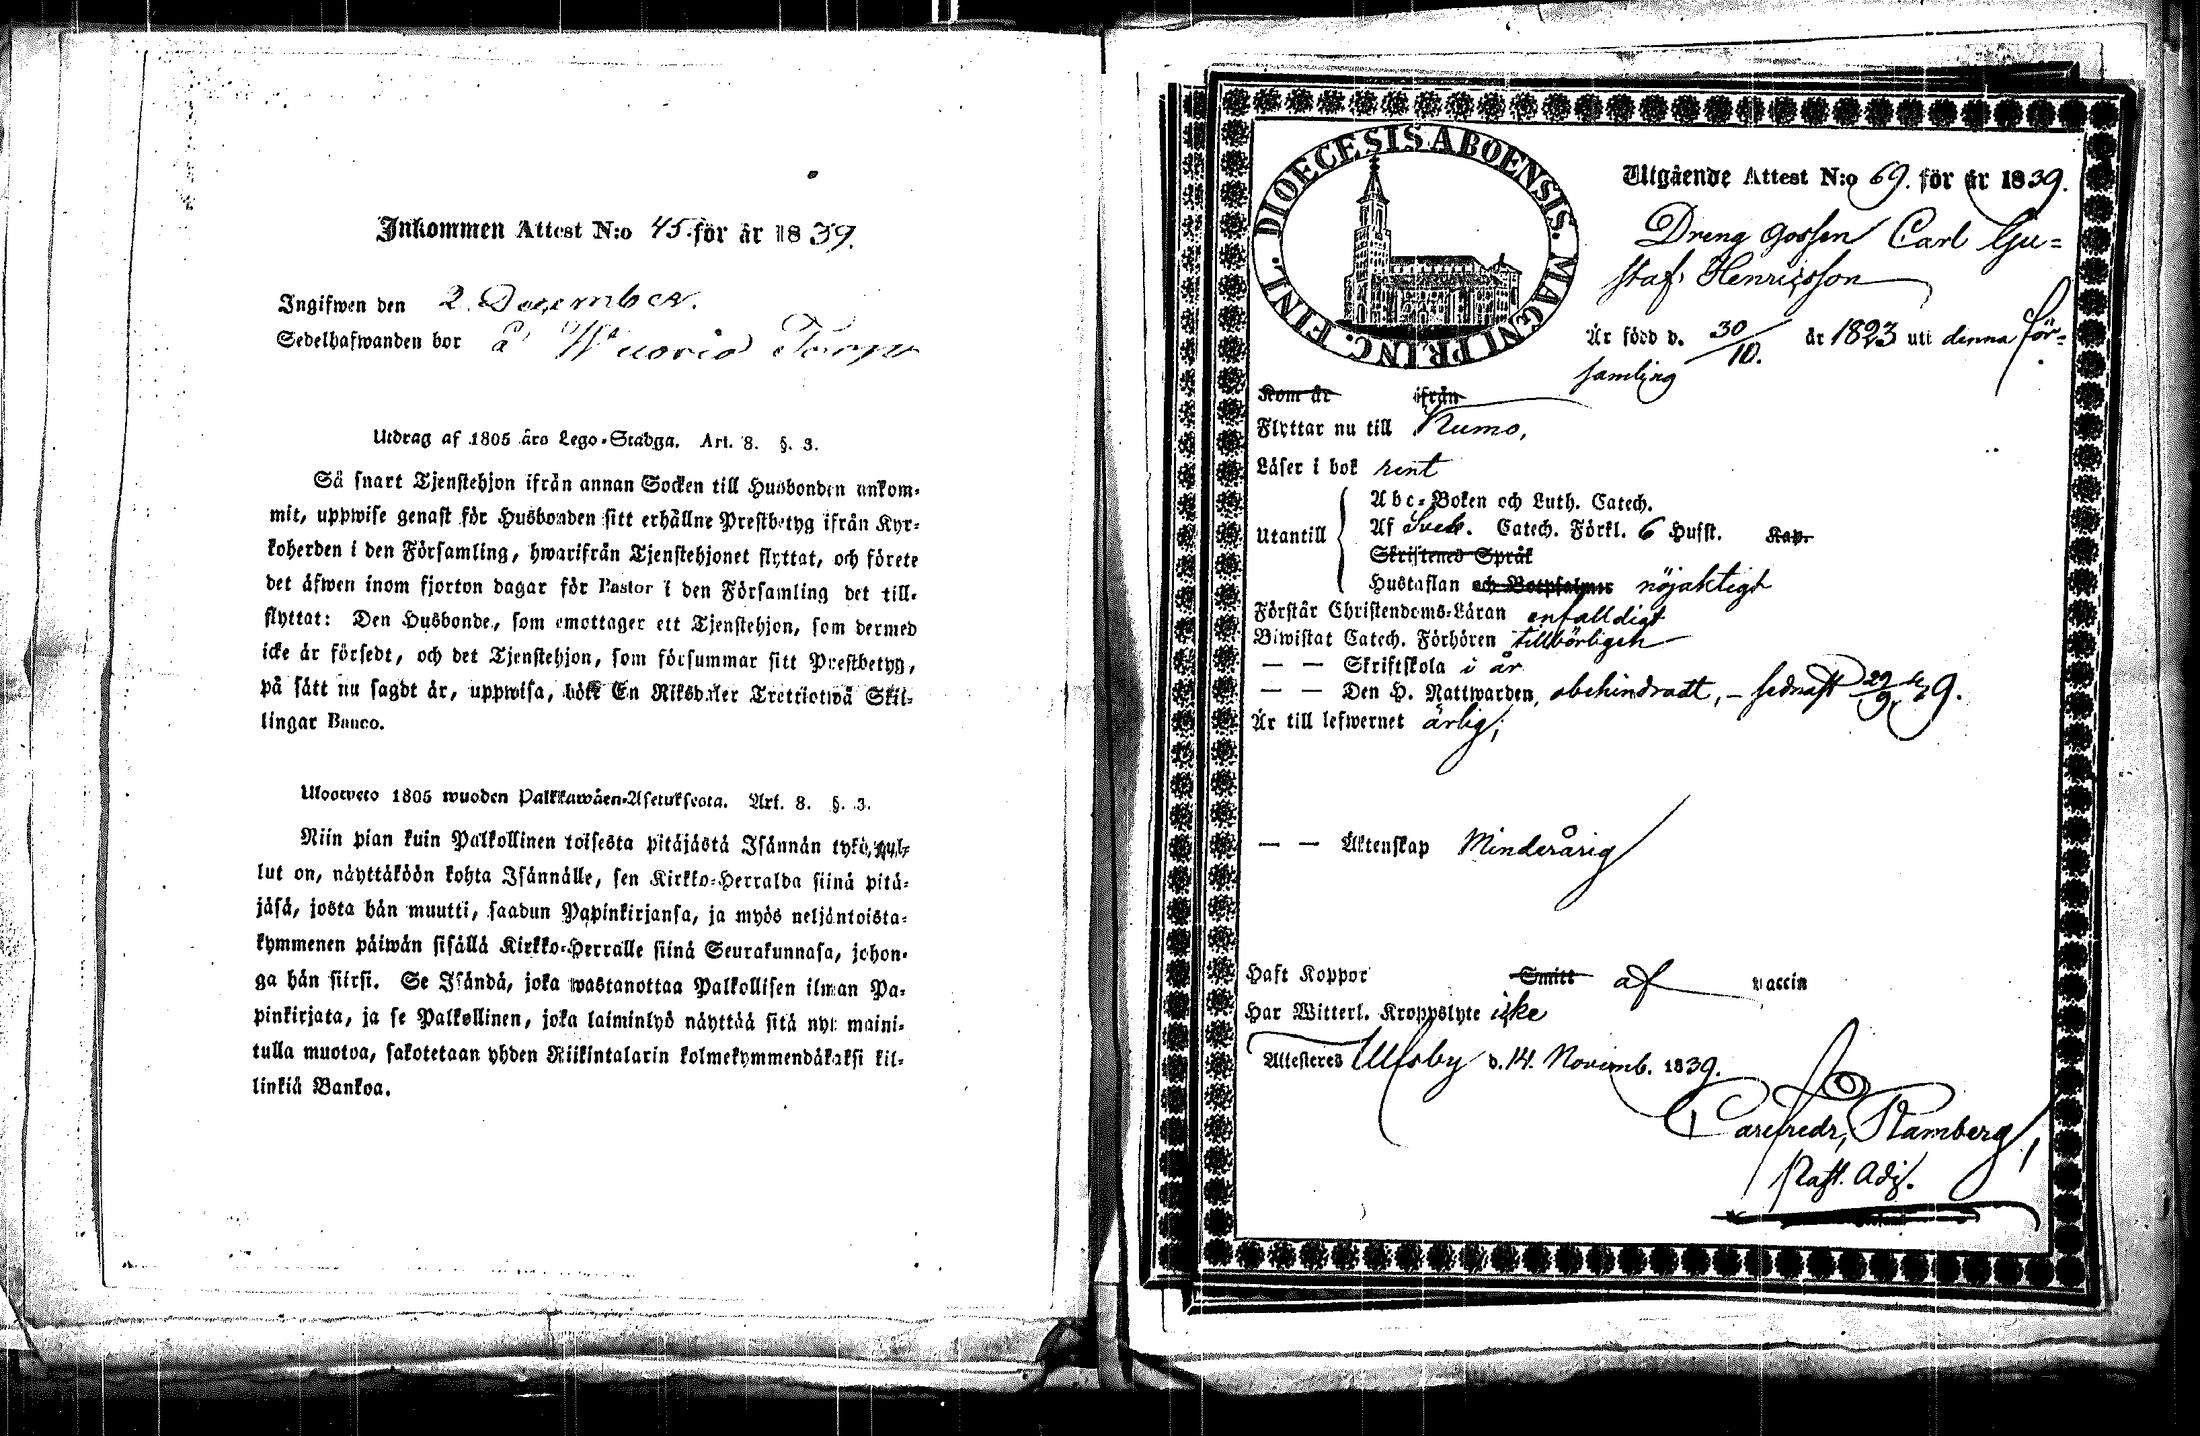 Inkommen Attest N:o 45. för år 1839.
Ingifwen den 2. December.
Sedelhafwanden bor å Wuorio Torp
Utdrag af 1805 års Lego-Stadga. Art. 8. §. 3.
Så snart Tjenstehjon ifrån annan Socken till Husbonden ankom-
mit, uppwise genast för Husbonden sitt erhållne Prestbetyg ifrån Kyr-
koherden i den Församling, hwarifrån Tjenstehjonet flyttat, och förete
det äfwen inom fjorton dagar för Pastor i den Församling det till-
flyttat: Den Husbonde, som emottager ett Tjenstehjon, som dermed
icke är försedt, och det Tjenstehjon, som försummar sitt Prestbetyg,
på sätt nu sagdt är, uppwisa, böte En Riksdaler Trettiotwå Skil-
lingar Banco.
Ulosweto 1805 wuoden Palkkawäen-Asetuksesta. Art. 8. §. 3.
Niin pian kuin Palkollinen toisesta pitäjästä Isännän tykö, tul-
lut on, näyttäköön kohta Isännälle, sen Kirkko-Herralda siinä pitä-
jäsä, josta hän muutti, saadun Papinkirjansa, ja myös neljäntoista-
kymmenen päiwän sisällä Kirkko-Herralle siinä Seurakunnasa, johon-
ga hän siirsi. Se Isändä, joka wastanottaa Palkollisen ilman Pa-
pinkirjata, ja se Palkollinen, joka laiminlyö näyttää sitä nyt maini-
tulla muotoa, sakotetaan yhden Riikintalarin kolmekymmendäkaksi kil-
linkiä Bankoa.
DIOECESIS ABOENSIS. MAGNI PRINC. FINL.
Utgående Attest N:o 69. för år 1839.
Dreng gossen Carl Gu-
staf Henricsson
Är född d. 30/10. år 1823 uti denna för-
samling
Kom år ifrån
Flyttar nu till Kumo,
Läser i bok rent
Abc-Boken och Luth. Catech.
Utantill Af Sveb. Catech. Förkl. 6 Hufst. Kap.
Skriftenes Språk
Hustaflan och Botpsalmer nöjaktigt
Förstår Christendoms-Läran enfalldigt
Biwistat Catech. Förhören tillbörligen
— — Skriftskola i år
— — Den H. Nattwarden, obehindradt, – sednast 29/9 39.
Är till lefwernet ärlig,
— — Äktenskap Minderårig
Haft Koppor Smitt af vaccin
Har Witterl. Kroppslyte icke
Attesteres Ulfsby d. 14. Novemb. 1839.
Carl Fredr. Stamberg,
Past. Adj.